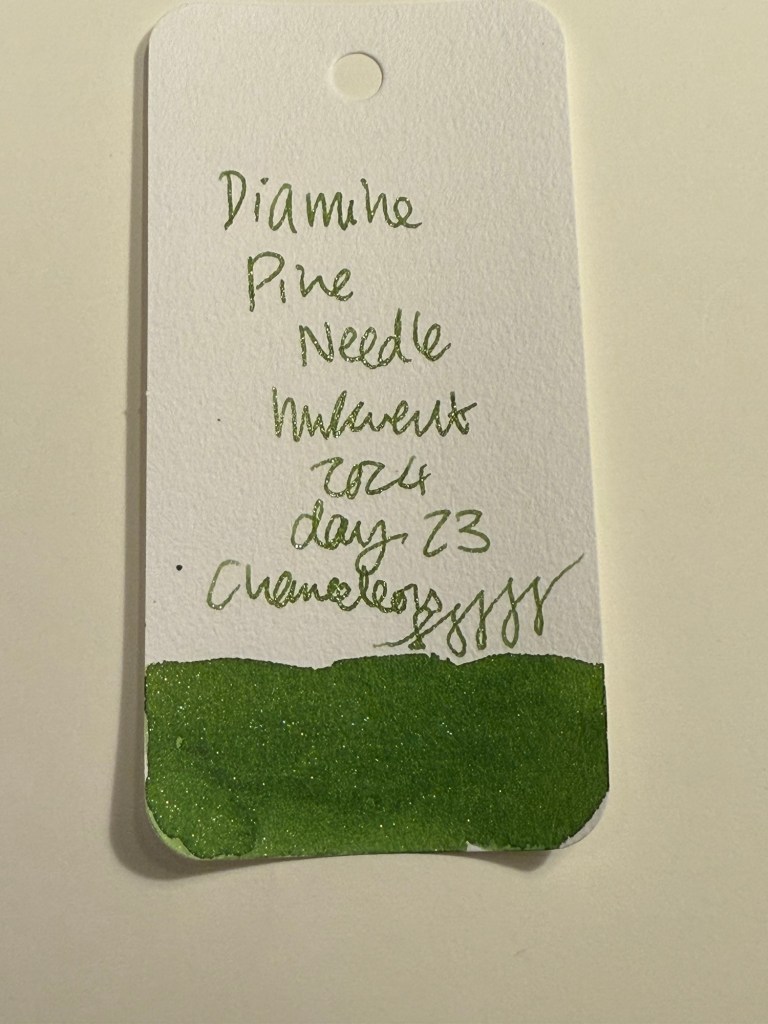 Diamine
Pine
Needle
Inkvent
2024
day 23
Chameleon